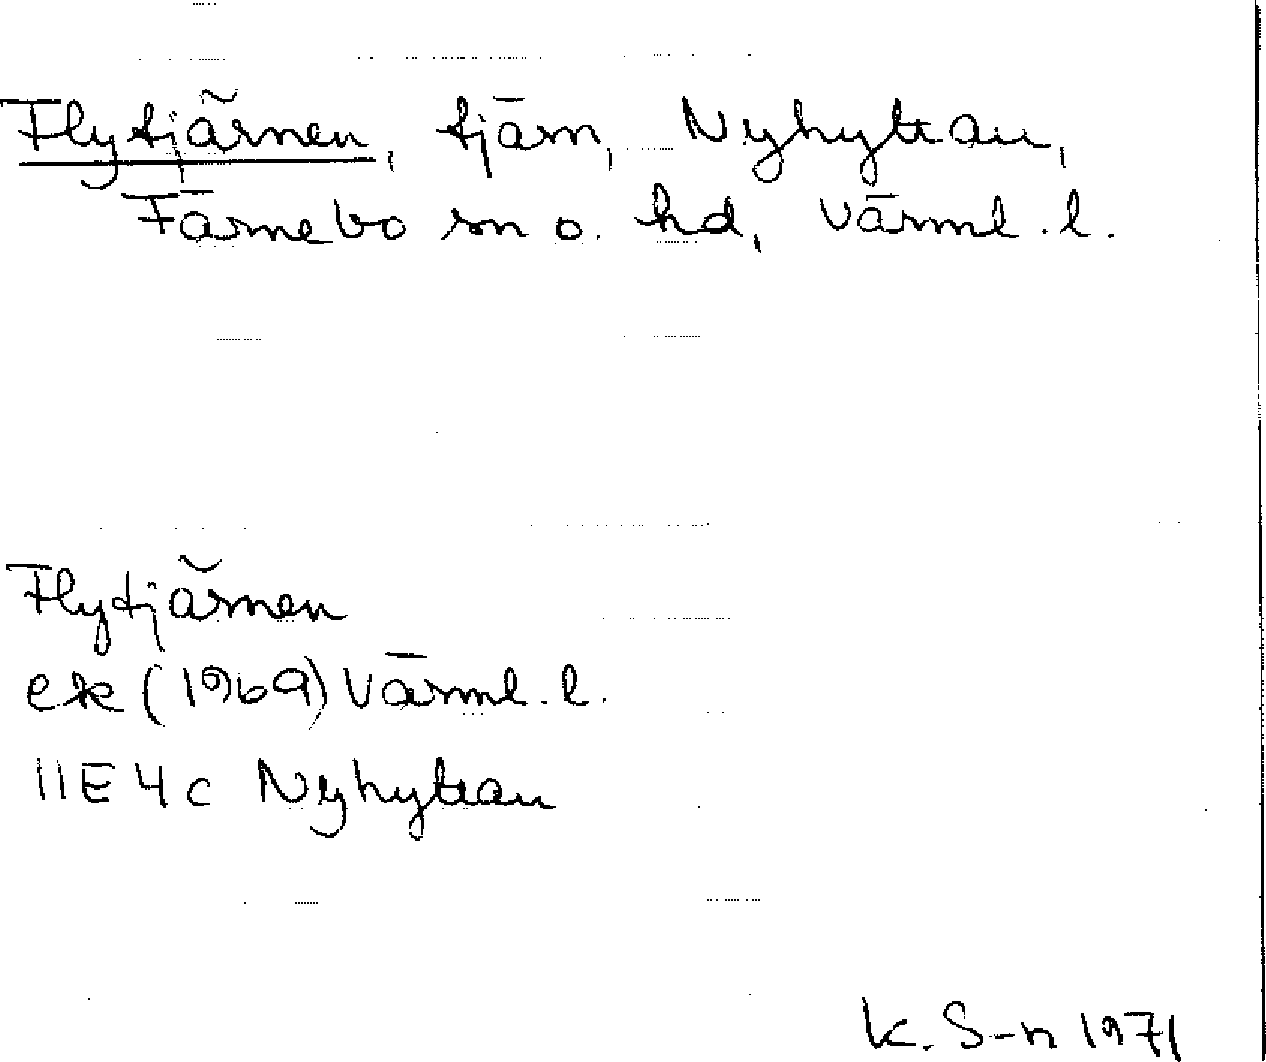 Flytjärnen, tjärn, Nyhyttan,
Färnebo sn o. hd, Värml. l.
Flytjärnen
ek (1969) Värml. l.
11E 4c Nyhyttan
K. S-n 1971